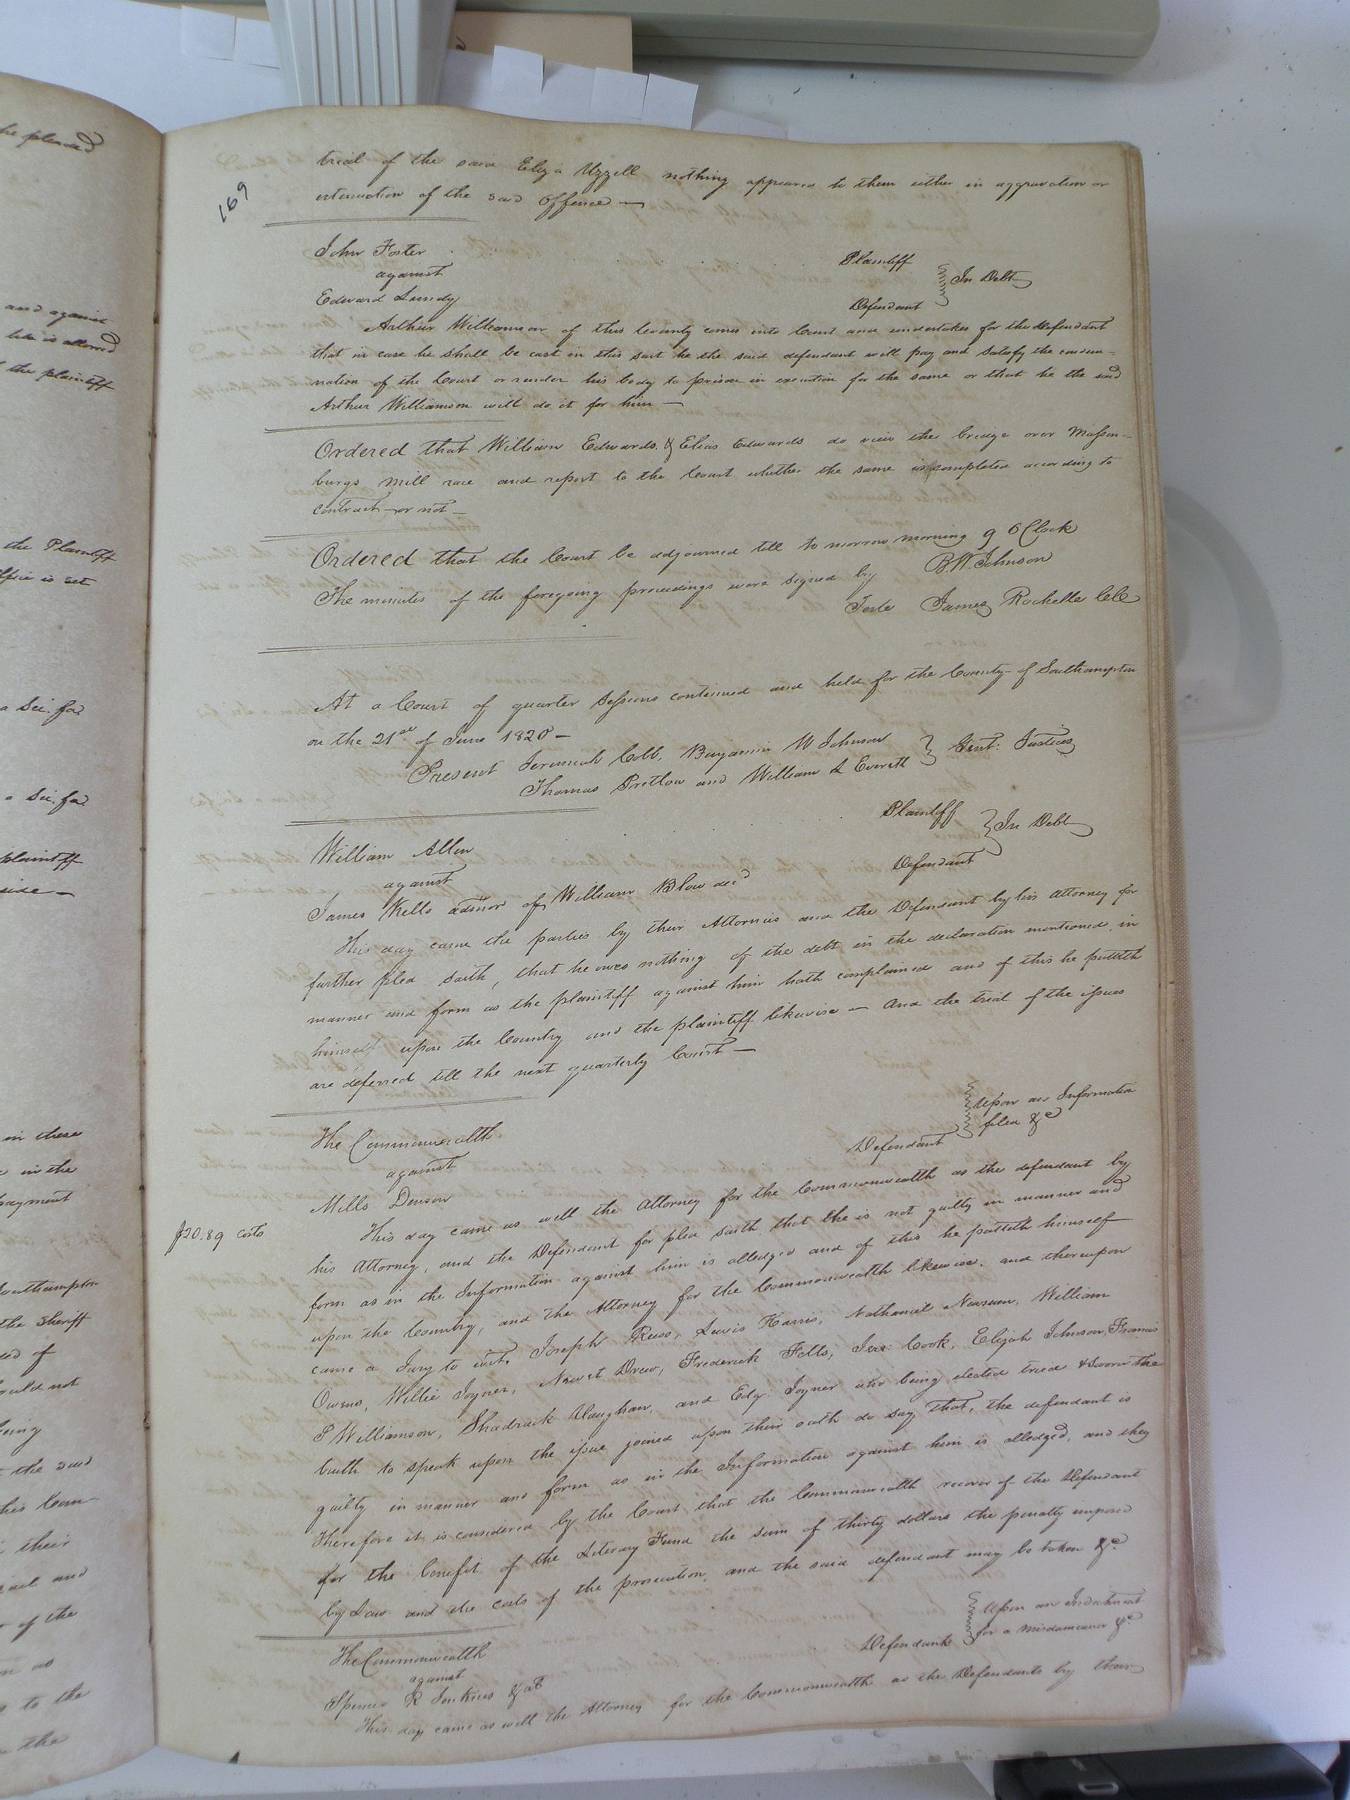 he pleaded
and against
like is allowed
the plaintiff
the Plaintiff
office is set
a Sci. fa.
a Sci. fa.
plaintiff
side —
in these
in the
payment
Southampton
the Sheriff
of
would not
being
the said
this Com-
their
and
of the
as
to the
the
169
trial of the said Eliza Uzzell nothing appeared to them either in aggravation or
extenuation of the said offence —
John Foster Plaintiff
against In Debt
Edward Lundy Defendant
Arthur Williamson of this County comes into Court and undertakes for the defendant
that in case he shall be cast in this suit he the said defendant will pay and satisfy the condem-
nation of the Court or render his body to prison in execution for the same or that he the said
Arthur Williamson will do it for him —
Ordered that William Edwards & Elias Edwards do view the bridge over Massen-
burgs mill race and report to the Court whether the same is completed according to
contract or not —
Ordered that the Court be adjourned till to morrow morning 9 O Clock
The minutes of the foregoing proceedings were signed by B. W. Johnson
Teste James Rochelle ClC
At a Court of quarter Sessions continued and held for the County of Southampton
on the 21st of June 1820 —
Present Jeremiah Cobb, Benjamin W Johnson
Thomas Pretlow and William L Everett Gent: Justices
William Allen Plaintiff
against In Debt
James Wells admor of William Blow decd Defendant
This day came the parties by their Attornies and the Defendant by his attorney for
further plea saith, that he owes nothing of the debt in the declaration mentioned, in
manner and form as the plaintiff against him hath complained and of this he putteth
himself upon the Country and the plaintiff likewise — And the trial of the issues
are deferred till the next quarterly Court —
The Commonwealth
against Defendant Upon an Information
filed &c
Mills Denson
$20.89 costs
This day came as well the Attorney for the Commonwealth as the defendant by
his Attorney, and the Defendant for plea saith that he is not guilty in manner and
form as in the Information against him is alledged and of this he putteth himself
upon the Country, and the Attorney for the Commonwealth likewise. and thereupon
came a Jury to wit. Joseph Reese, Lewis Harris, Nathaniel Newsum, William
Owens, Willie Joyner, Newit Drew, Frederick Fells, Cook, Elijah Johnson, Thomas
P Williamson, Shadrack Vaughan, and Edy. Joyner who being elected tried & sworn the
truth to speak upon the issue joined upon their oath do say that, the defendant is
guilty in manner and form as in the Information against him is alledged, and they
Therefore it is considered by the Court, that the Commonwealth recover of the Defendant
for the benefit of the Literary Fund the sum of thirty dollars the penalty imposed
by Law and the costs of the prosecution, and the said defendant may be taken &c.
The Commonwealth
against Defendants Upon an Indictment
for a misdemeanor &c
Spencer R Jenkins & al
This day came as well the Attorney for the Commonwealth as the Defendants by their